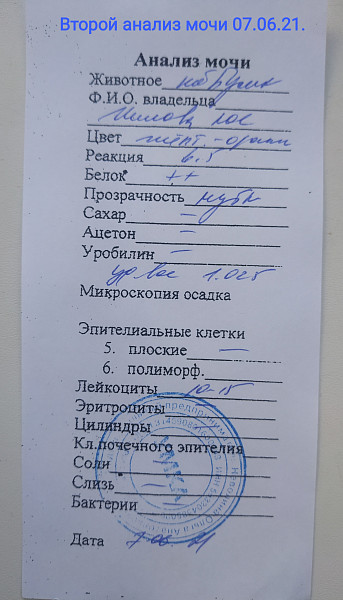 Второй анализ мочи 07.06.21.
Анализ мочи
Животное
Ф.И.О. владельца
Цвет
Реакция 6.5
Белок ++
Прозрачность
Сахар –
Ацетон –
Уробилин –
уд вес 1.025
Микроскопия осадка
Эпителиальные клетки
5. плоские –
6. полиморф.
Лейкоциты 10-15
Эритроциты
Цилиндры
Кл.почечного эпителия
Соли
Слизь
Бактерии
Дата 7.06. 21